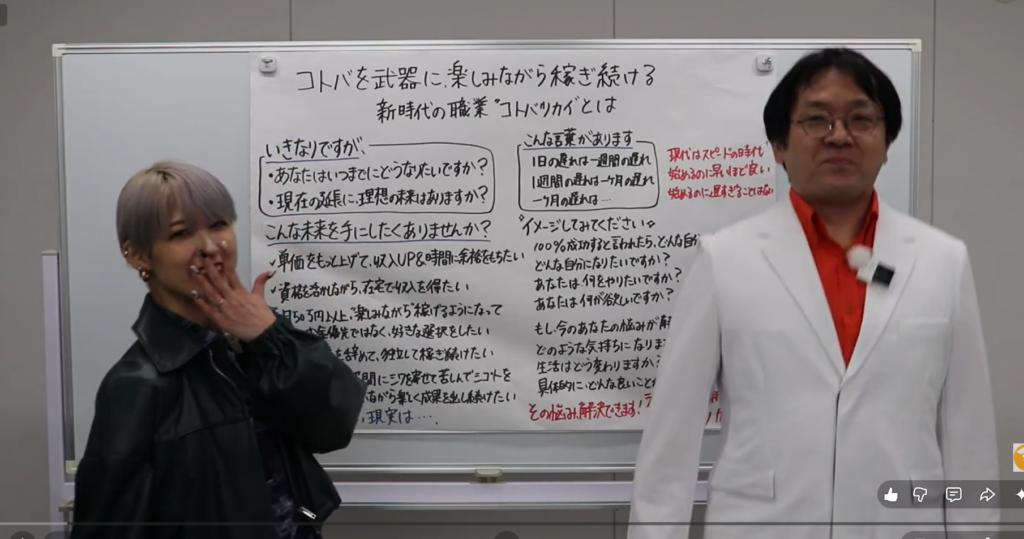 コトバを武器に、楽しみながら稼ぎ続ける
新時代の職業"コトバツカイ"とは
いきなりですが、
・あなたはいつまでにどうなりたいですか?
・現在の延長に、理想の未来はありますか?
こんな未来を手にしたくありませんか?
✓単価をもっと上げて、収入UP&時間に余裕をもちたい
✓資格を活かしながら、在宅で収入を得たい
月50万円以上、"楽しみながら"稼げるようになって
優先ではなく、好きな選択をしたい
を辞めて、独立して稼ぎ続けたい
間にシワを寄せて苦しんでシゴトを
ながら楽しく成果を出し続けたい
現実は…
こんな言葉があります
1日の遅れは一週間の遅れ
1週間の遅れは一ヶ月の遅れ
一ヶ月の遅れは…
現代はスピードの時代
始めるのに早いほど良い
始めるのに遅すぎることはない
イメージしてみてください
100%成功すると言われたら、どんな自分
どんな自分になりたいですか?
あなたは何をやりたいですか?
あなたは何が欲しいですか?
もし、今のあなたの悩みが解
どのような気持ちになりま
生活はどう変わりますか?
具体的に、どんな良いこと
その悩み、解決できます!